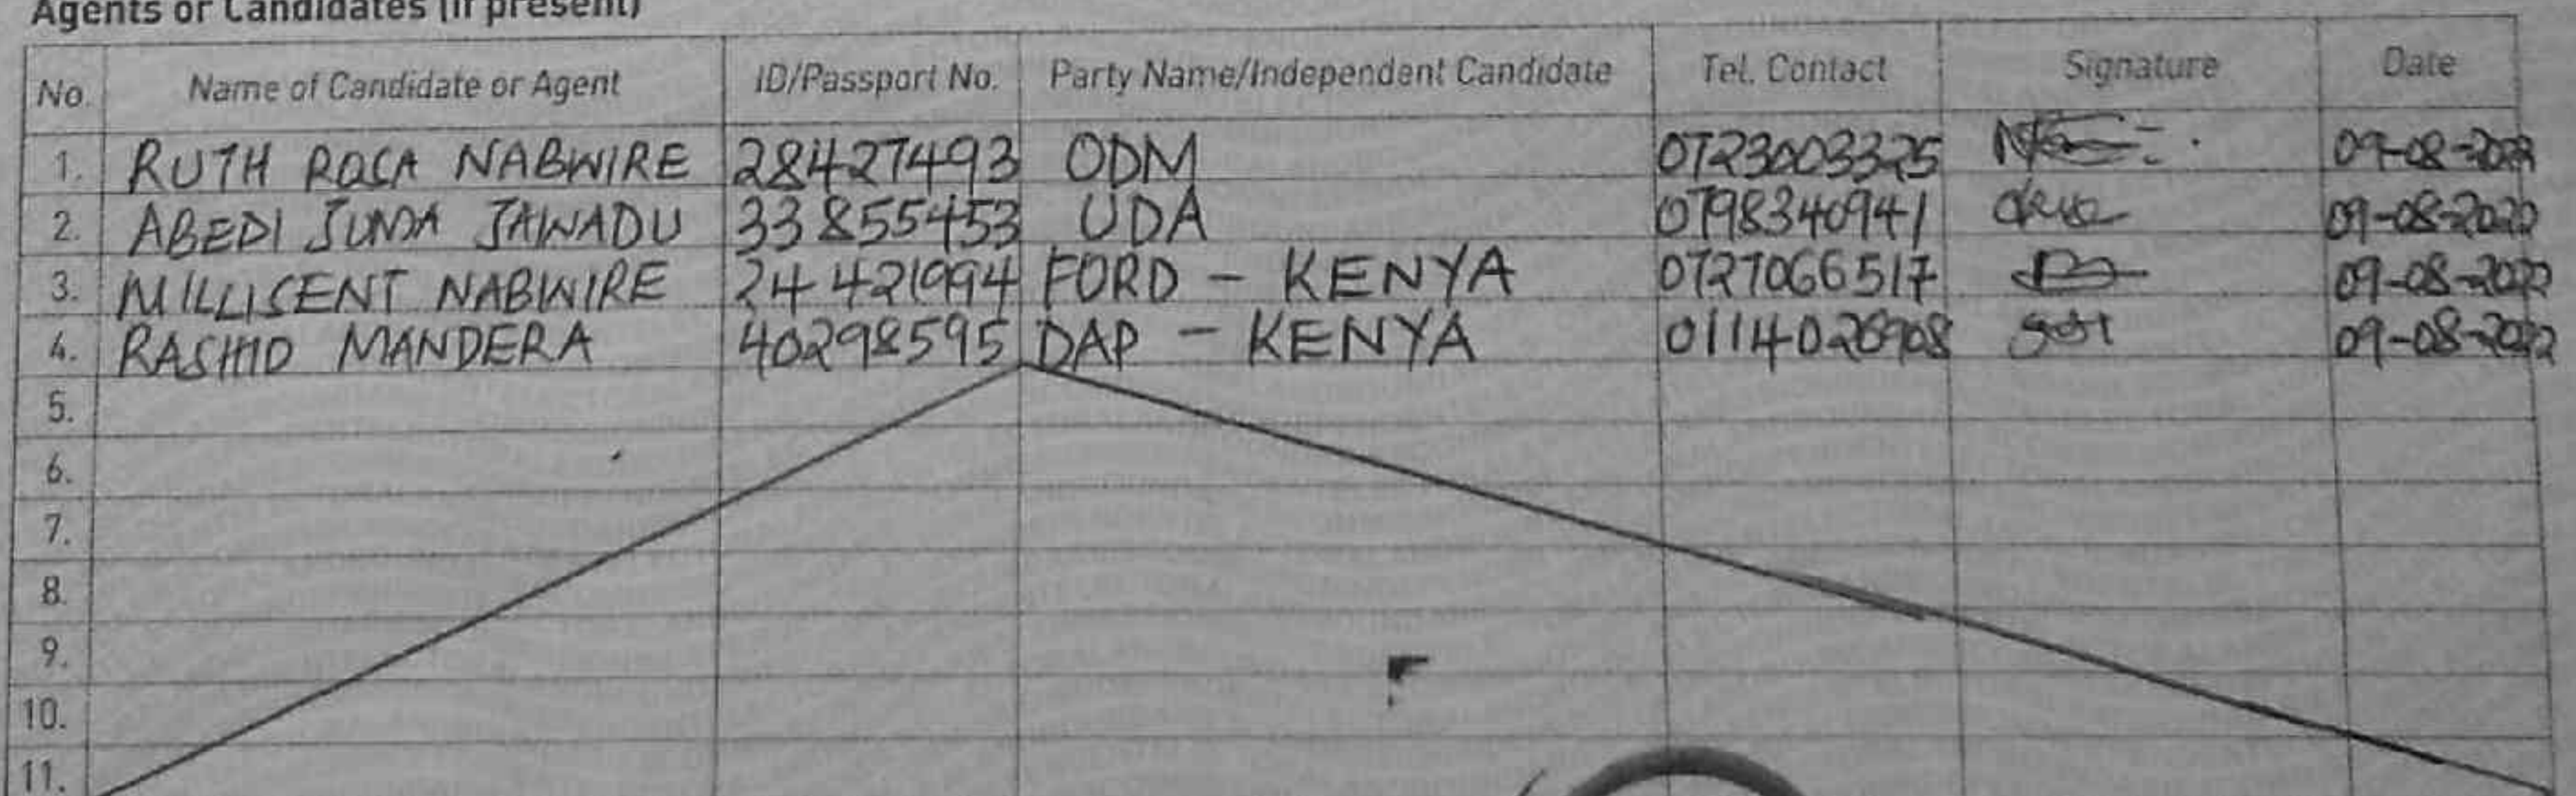 Agents or Candidates (if present)
No. Name of Candidate or Agent ID/Passport No. Party Name/Independent Candidate Tel. Contact Signature Date
1. RUTH ROSA NABWIRE 28427493 ODM 0723003325 09-08-2022
2. ABEDI JUMA JAWADU 33855453 UDA 0798340941 09-08-2022
3. MILLISENT NABWIRE 24421994 FORD - KENYA 0727066517 09-08-2022
4. RASHID MANDERA 40298595 DAP - KENYA 09-08-2022
5.
6.
7.
8.
9.
10.
11.